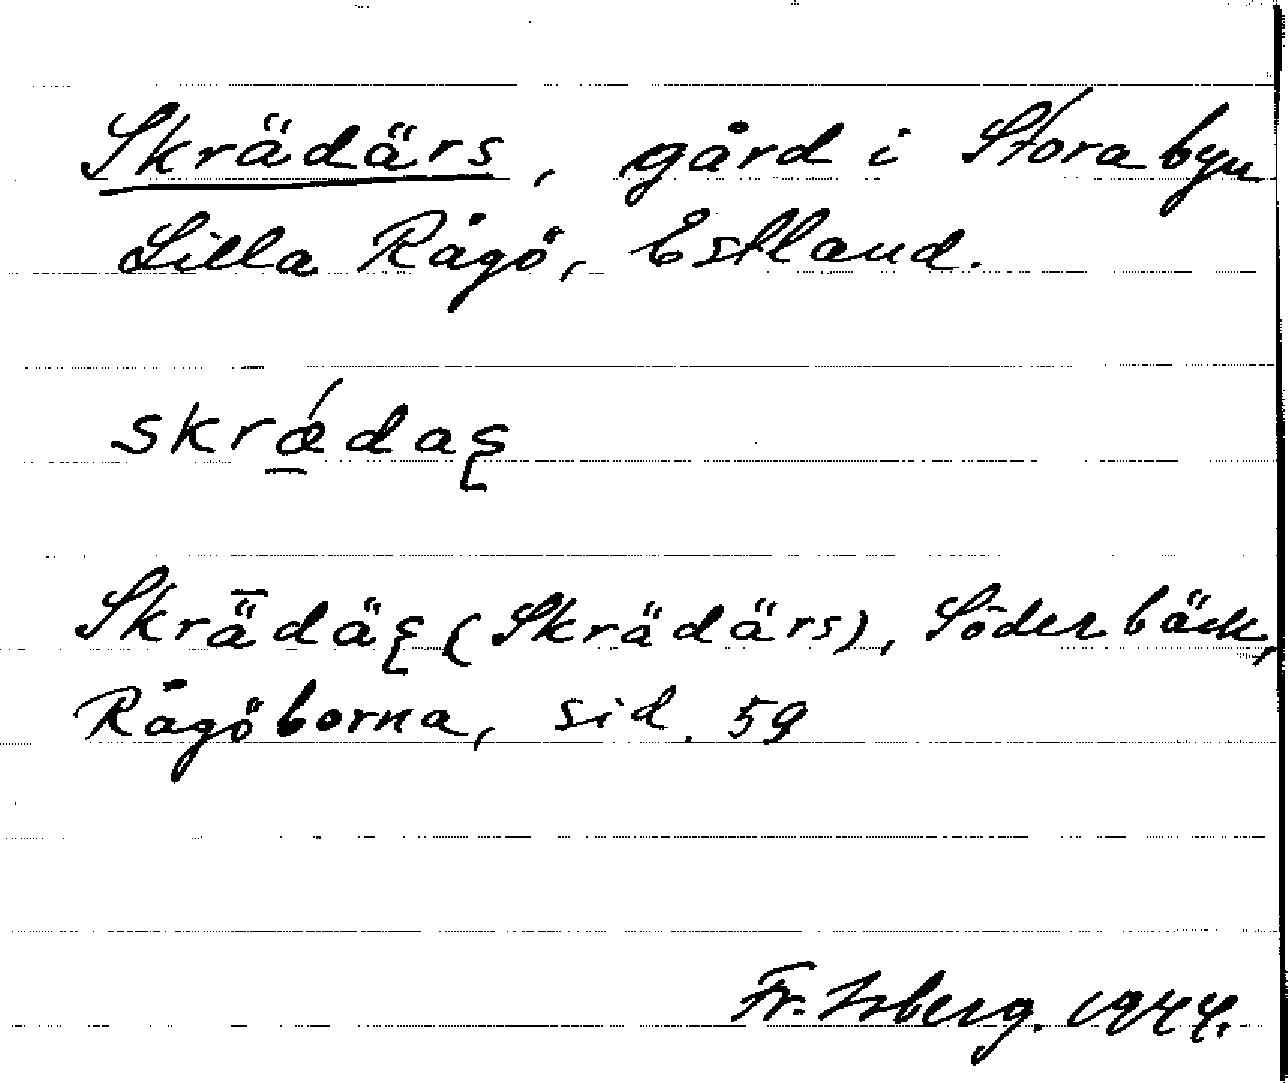 Skrädärs, gård i Stora byn
Lilla Rågö, Estland.
skrǽ̱daʂ
Skrǟdäʂ (Skrädärs), Söderbäck,
Rågöborna, sid. 59
Fr. Isberg. 1944.